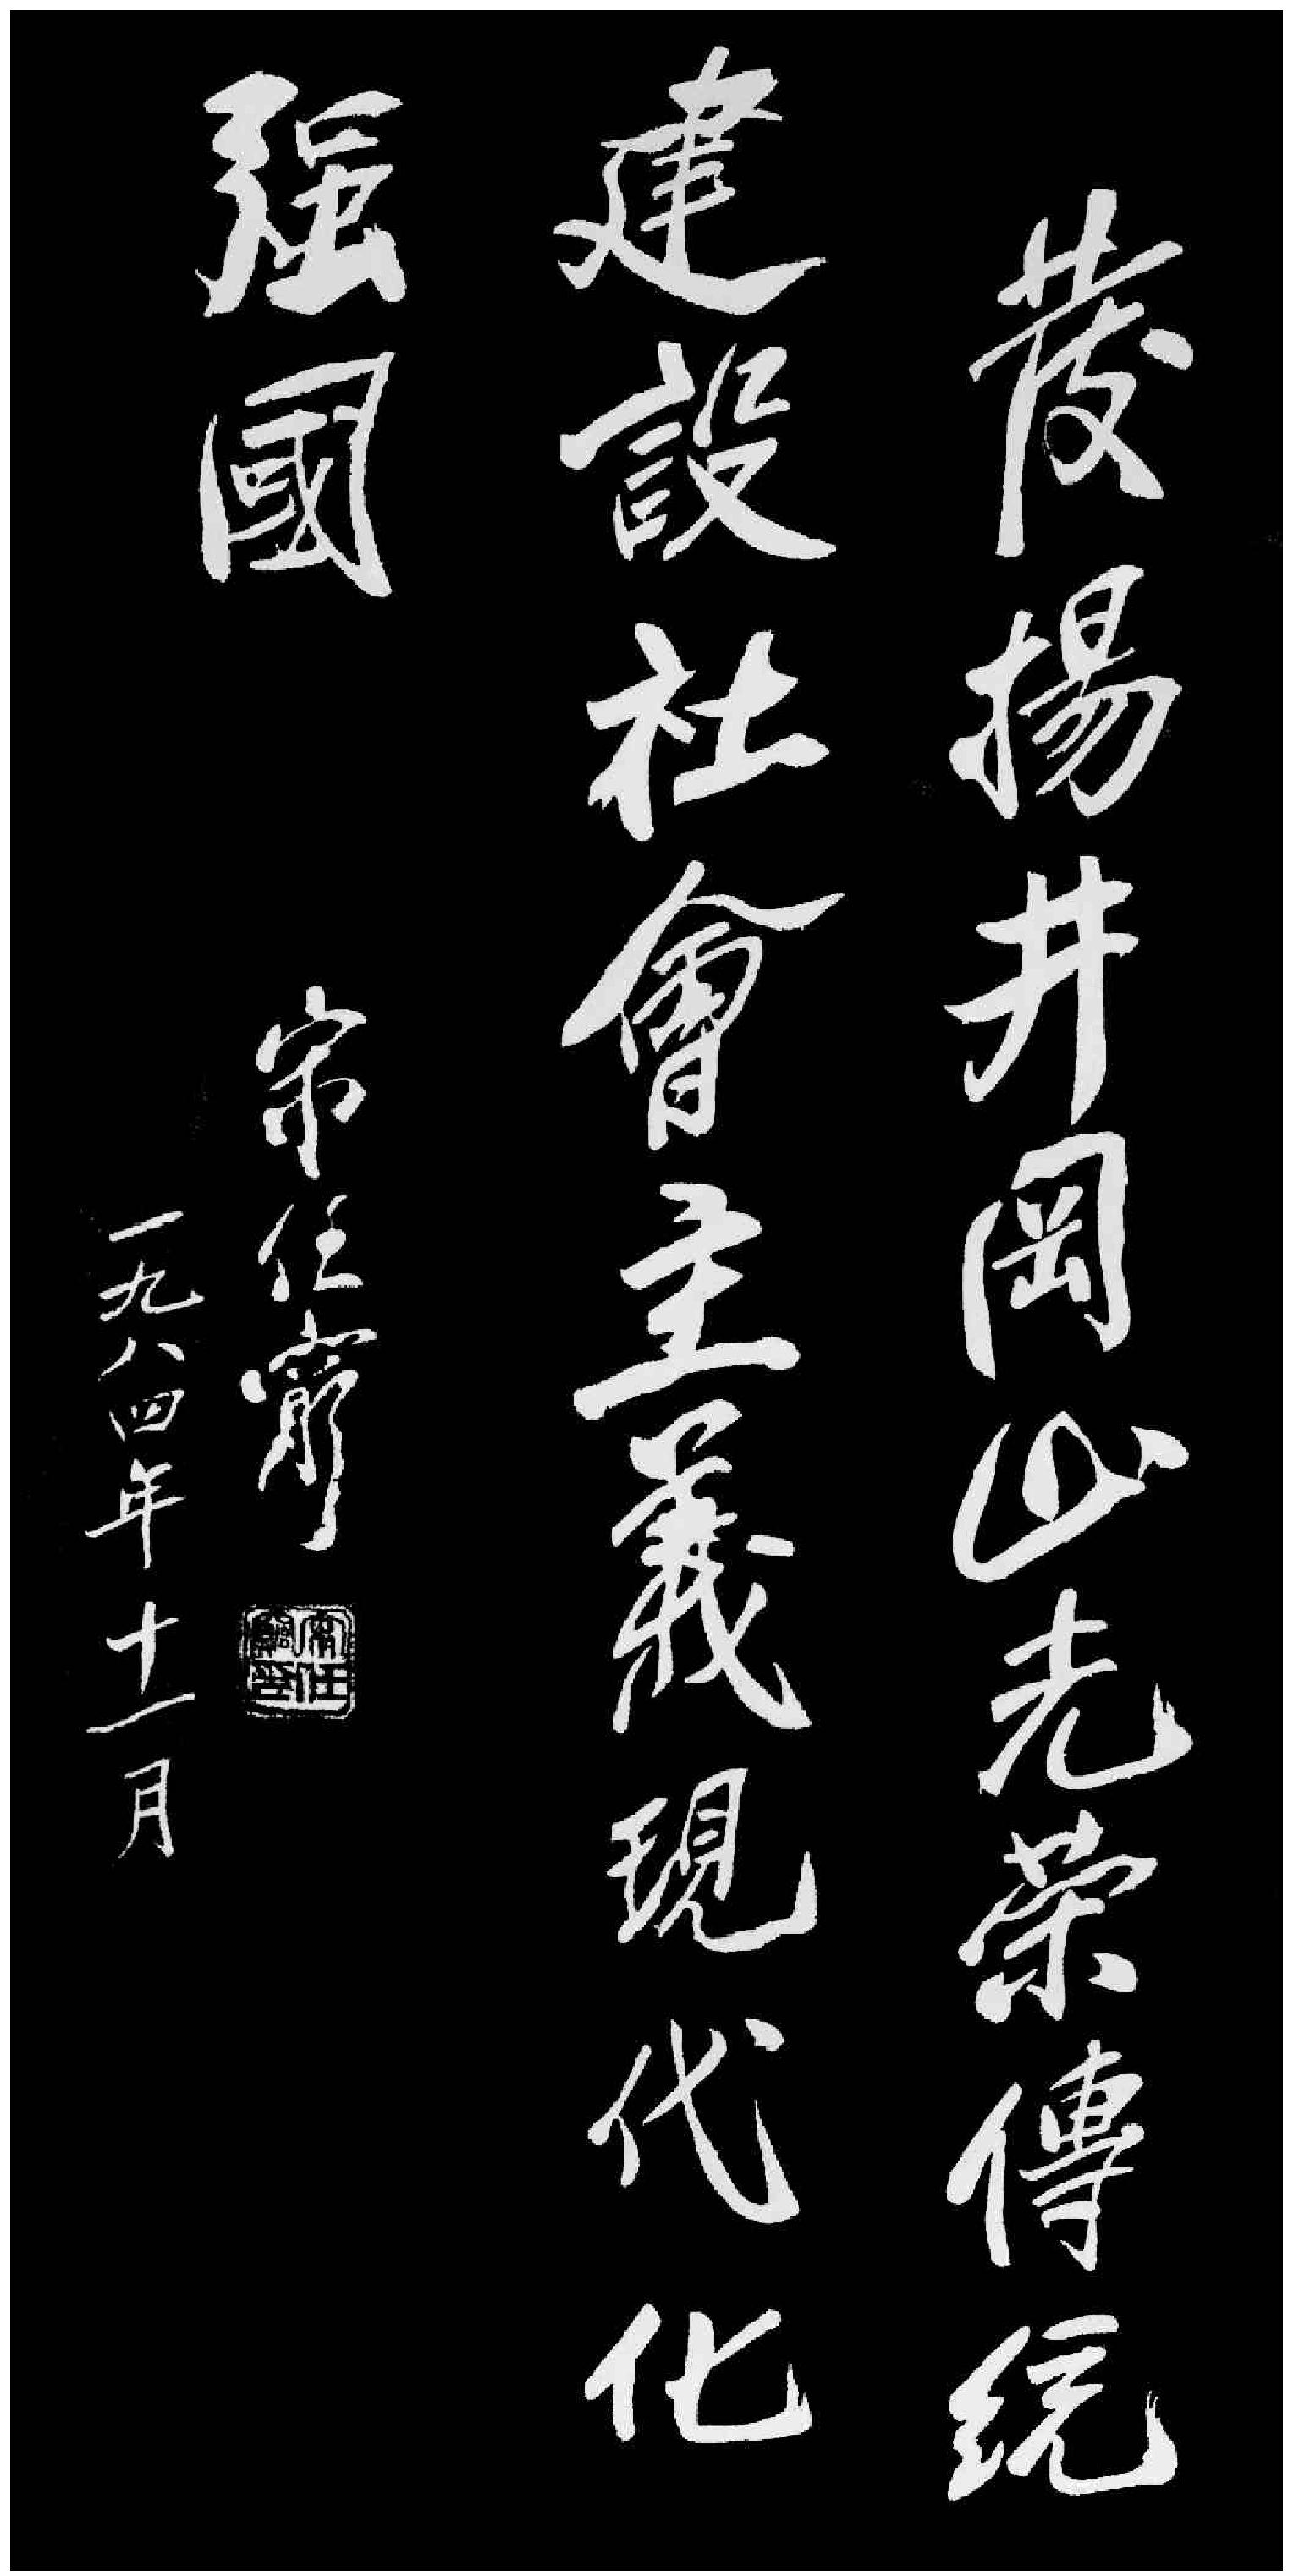 發揚井岡山光荣傳统
建設社會主義現代化
强國
宋任窮
一九八四年十一月
宋任窮印